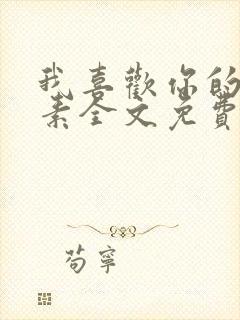 我喜歡你的
素全文免費
苟寧